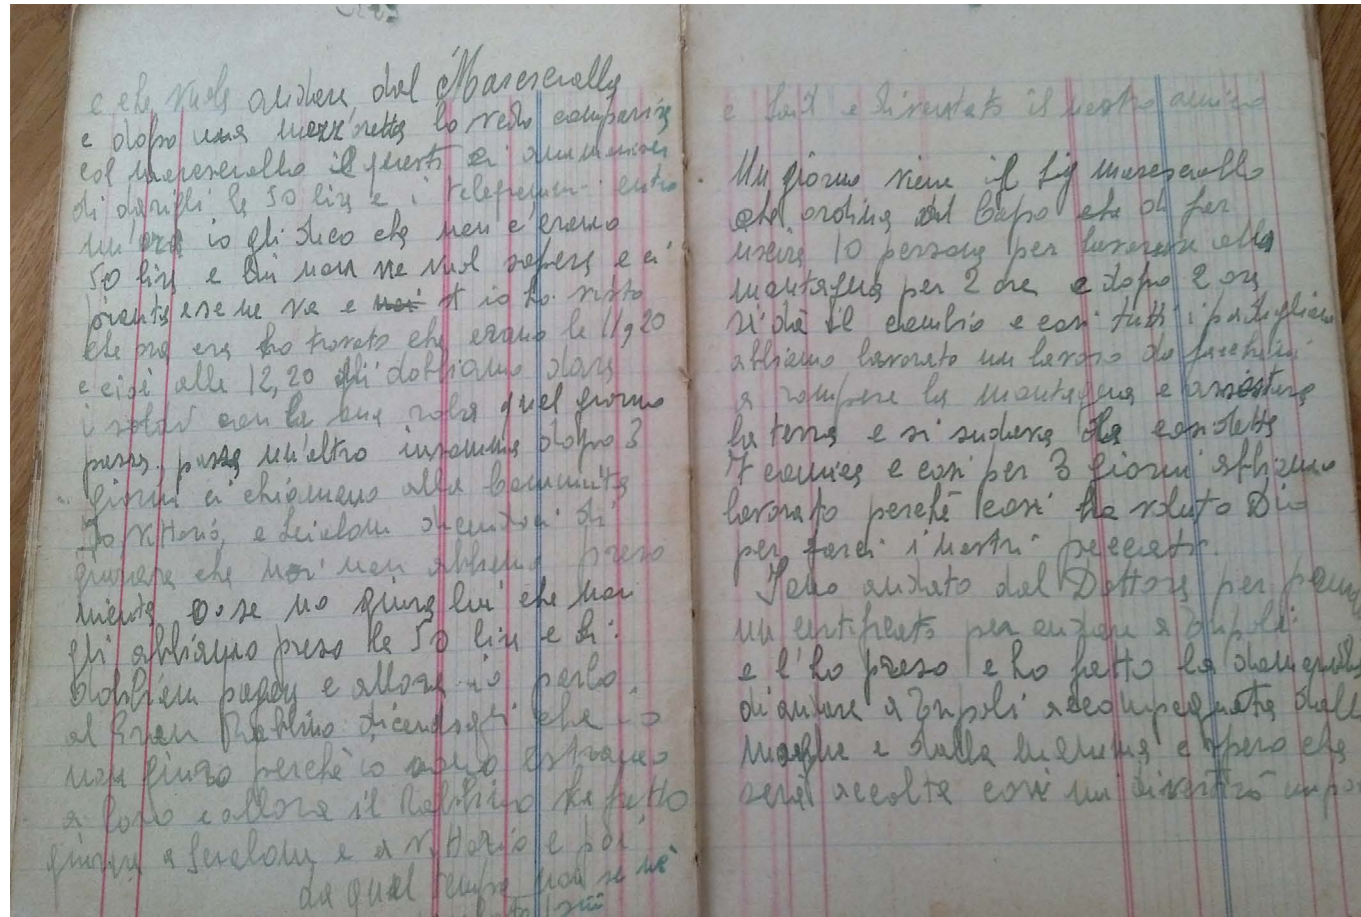 e che vuole andare dal Maresciallo
e dopo una mezz'oretta lo vedo comparire
col maresciallo e questi ci
di dargli le 50 lire e i entro
un'ora io gli dico che non c'erano
50 lire e lui non ne vuol sapere e ci
pianta e se ne va e io ho visto
che ora era ho trovato che erano le 11,20
e cioè alle 12,20 gli dobbiamo dare
i soldi con la sua roba quel giorno
passa passa un'altro insomma dopo 3
giorni ci chiamano alla Comunità
Io Vittorio, e dicendoci di
giurare che noi non abbiamo preso
niente o se no giura lui che noi
gli abbiamo preso le 50 lire e li
dobbiam pagare e allora io parlo
al Gran Rabbino dicendogli che io
non giuro perchè io sono estraneo
a loro e allora il Rabbino ha fatto
giurare a e a Vittorio e poi
da quel tempo non se nè
più
e Said e diventato il nostro amico
Un giorno viene il Sig maresciallo
che ordina al Capo che di far
uscire 10 persone per lavorare alla
montagna per 2 ore e dopo 2 ore
si dà il cambio e così tutti i padiglioni
abbiamo lavorato un lavoro da facchini
a rompere la montagna e
la terra e si sudava da
7 camice e così per 3 giorni abbiamo
lavorato perchè così ha voluto Dio
per farci i nostri peccati.
Sono andato dal Dottore per
un certificato per andare a Empoli
e l'ho preso e ho fatto la domanda
di andare a Empoli accompagnata dalla
moglie e dalla mamma e spero che
sarà accolta così mi divertirò un po